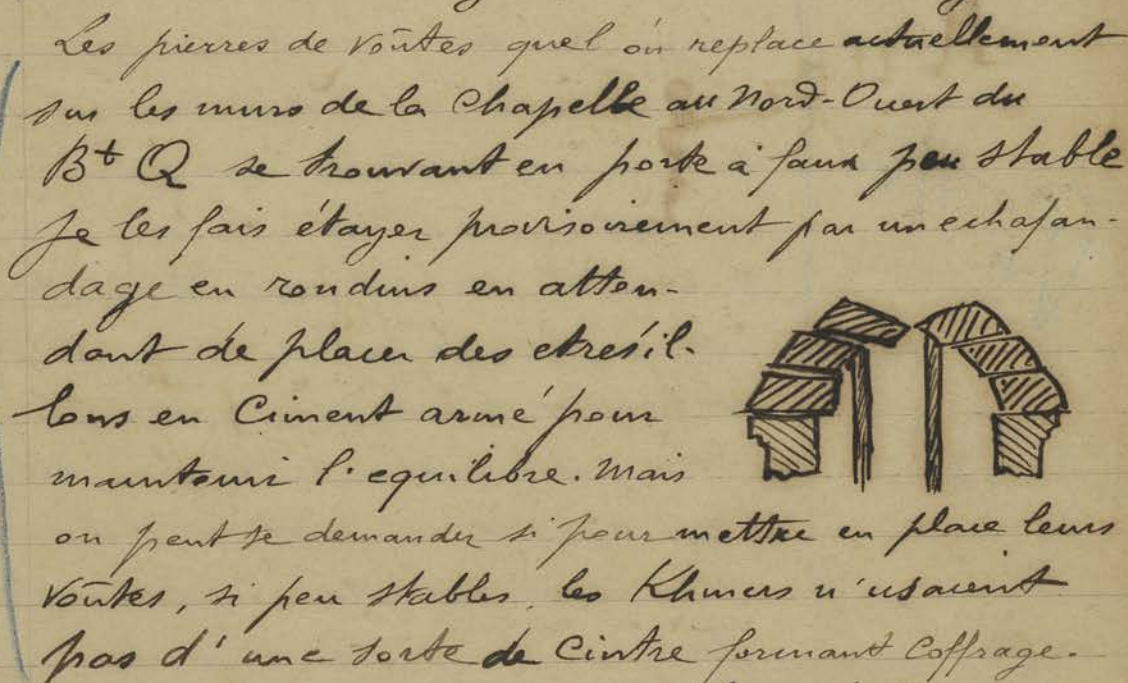 Les pierres de voûtes quel'on replace actuellement
sur les murs de la Chapelle au Nord-Ouest du
Bt Q se trouvant en porte à faux peu stable
je les fais étayer provisoirement par un echafau-
dage en rondins en atten-
dant de placer des etrésil-
lons en Ciment armé pour
maintenir l'equilibre. Mais
on peut se demander si pour mettre en place leurs
voûtes, si peu stables, les Khmers n'usaient
pas d'une sorte de Cintre formant Coffrage.